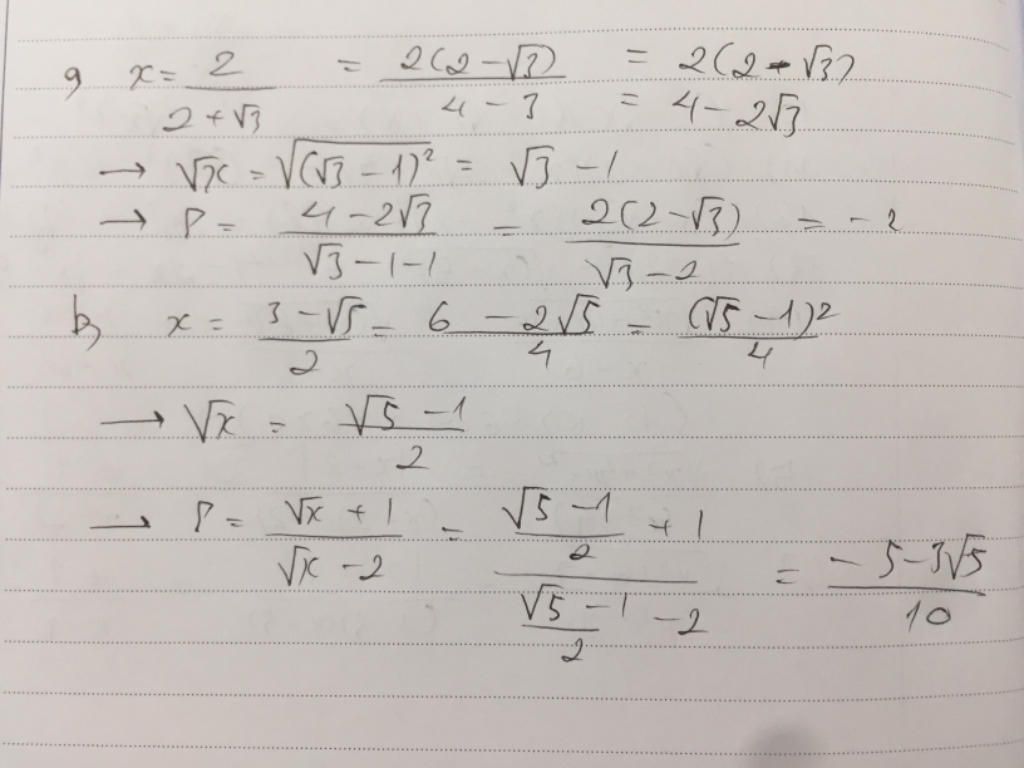 a) x = 2/(2 + √3) = 2(2 - √3)/(4 - 3) = 2(2 - √3)
= 4 - 2√3
→ √x = √((√3 - 1)²) = √3 - 1
→ P = (4 - 2√3)/(√3 - 1 - 1) = 2(2 - √3)/(√3 - 2) = - 2
b) x = (3 - √5)/2 = (6 - 2√5)/4 = (√5 - 1)²/4
→ √x = (√5 - 1)/2
→ P = (√x + 1)/(√x - 2) = ((√5 - 1)/2 + 1)/((√5 - 1)/2 - 2) = (- 5 - 3√5)/10